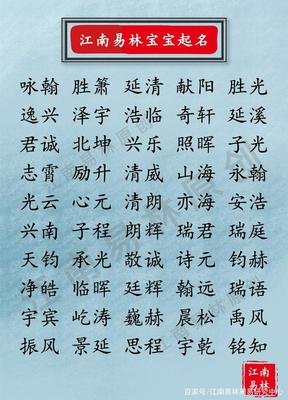 江南易林宝宝起名
咏翰 胜箫 延清 献阳 胜光
逸兴 泽宇 浩临 奇轩 延溪
君诚 北坤 兴乐 照晖 子光
志霄 励升 清威 山海 永翰
光云 心元 清朗 亦海 安浩
兴南 子程 朗辉 瑞君 瑞庭
天钧 承光 敬诚 诗元 钧赫
净皓 临晖 廷辉 翰远 瑞语
宇宾 屹涛 巍赫 晨松 禹风
振风 景延 思程 宇乾 铭知
江南
易林
百家号/江南易林周易研究中心
江南易林周易原创